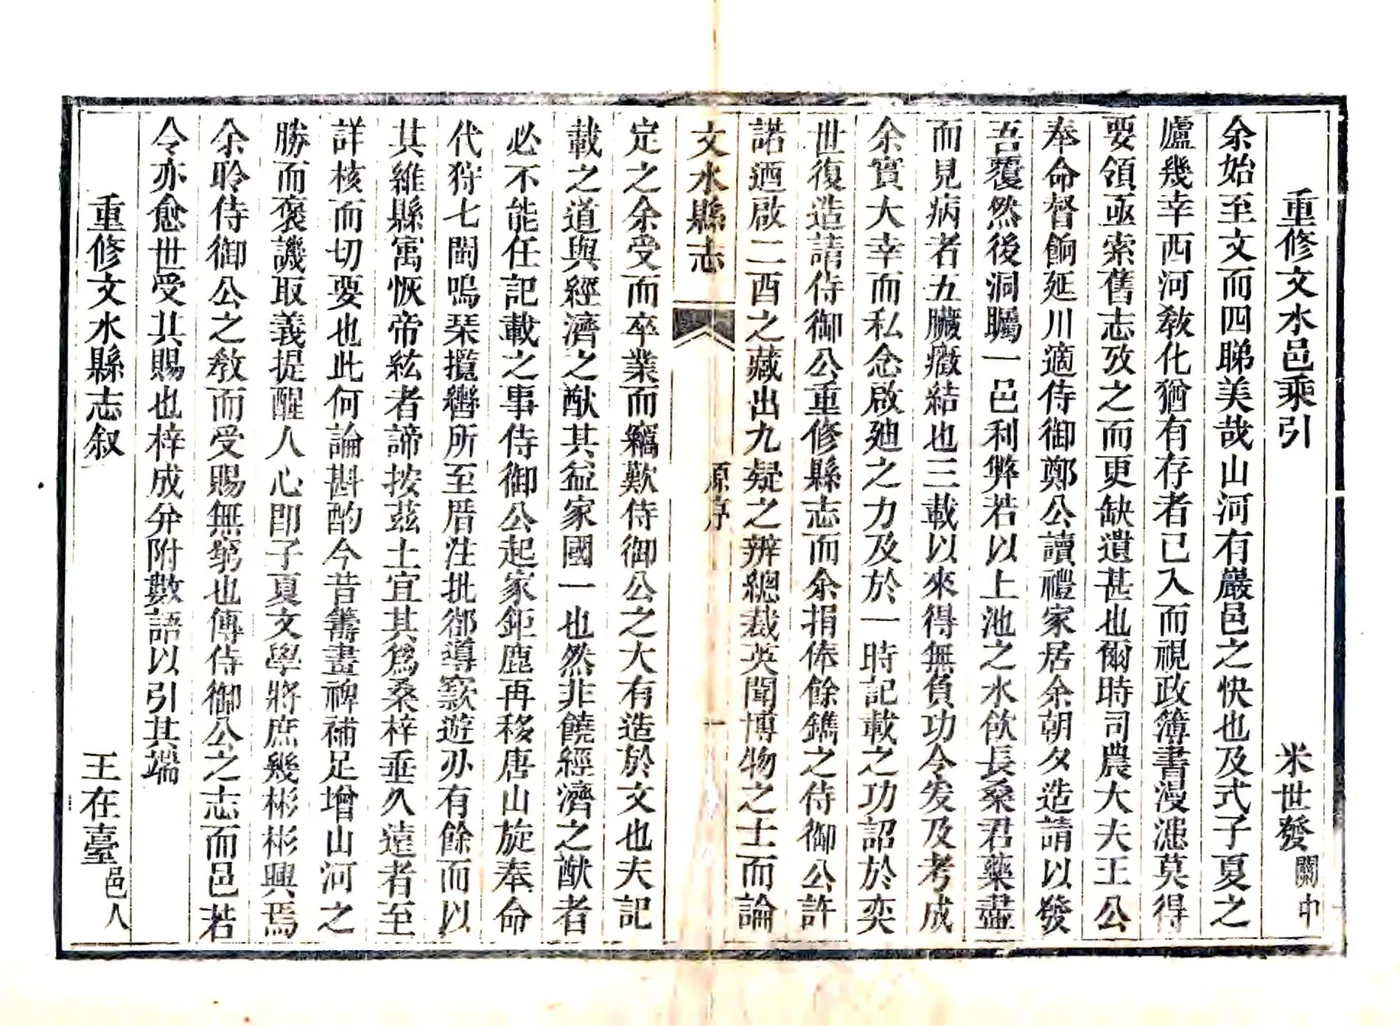 重修文水邑乘引 米世發關中
余始至文而四睇美哉山河有嚴邑之快也及式子夏之
廬幾幸西河敎化猶有存者已入而視政簿書漫漶莫得
要領亟索舊志攷之而更缺遺甚也爾時司農大夫王公
奉命督餉延川適侍御鄭公讀禮家居余朝夕造請以發
吾覆然後洞矚一邑利弊若以上池之水飲長桑君藥盡
而見病者五臟癥結也三載以來得無負功令爰及考成
余實大幸而私念啟廸之力及於一時記載之功詔於奕
世復造請侍御公重修縣志而余捐俸餘鐫之侍御公許
諾迺啟二酉之藏出九疑之辨總裁英聞博物之士而論
文水縣志 原序 一
定之余受而卒業而竊歎侍御公之大有造於文也夫記
載之道與經濟之猷其益家國一也然非饒經濟之猷者
必不能任記載之事侍御公起家鉅鹿再移唐山旋奉命
代狩七閩鳴琴攬轡所至厝注批郤導窾遊刃有餘而以
其維縣寓恢帝紘者諦按茲土宜其爲桑梓垂久遠者至
詳核而切要也此何論斟酌今昔籌畫裨補足增山河之
勝而褒譏取義提醒人心卽子夏文學將庶幾彬彬興焉
余聆侍御公之敎而受賜無窮也傳侍御公之志而邑若
令亦愈世受其賜也梓成弁附數語以引其端
重修文水縣志叙 王在臺邑人